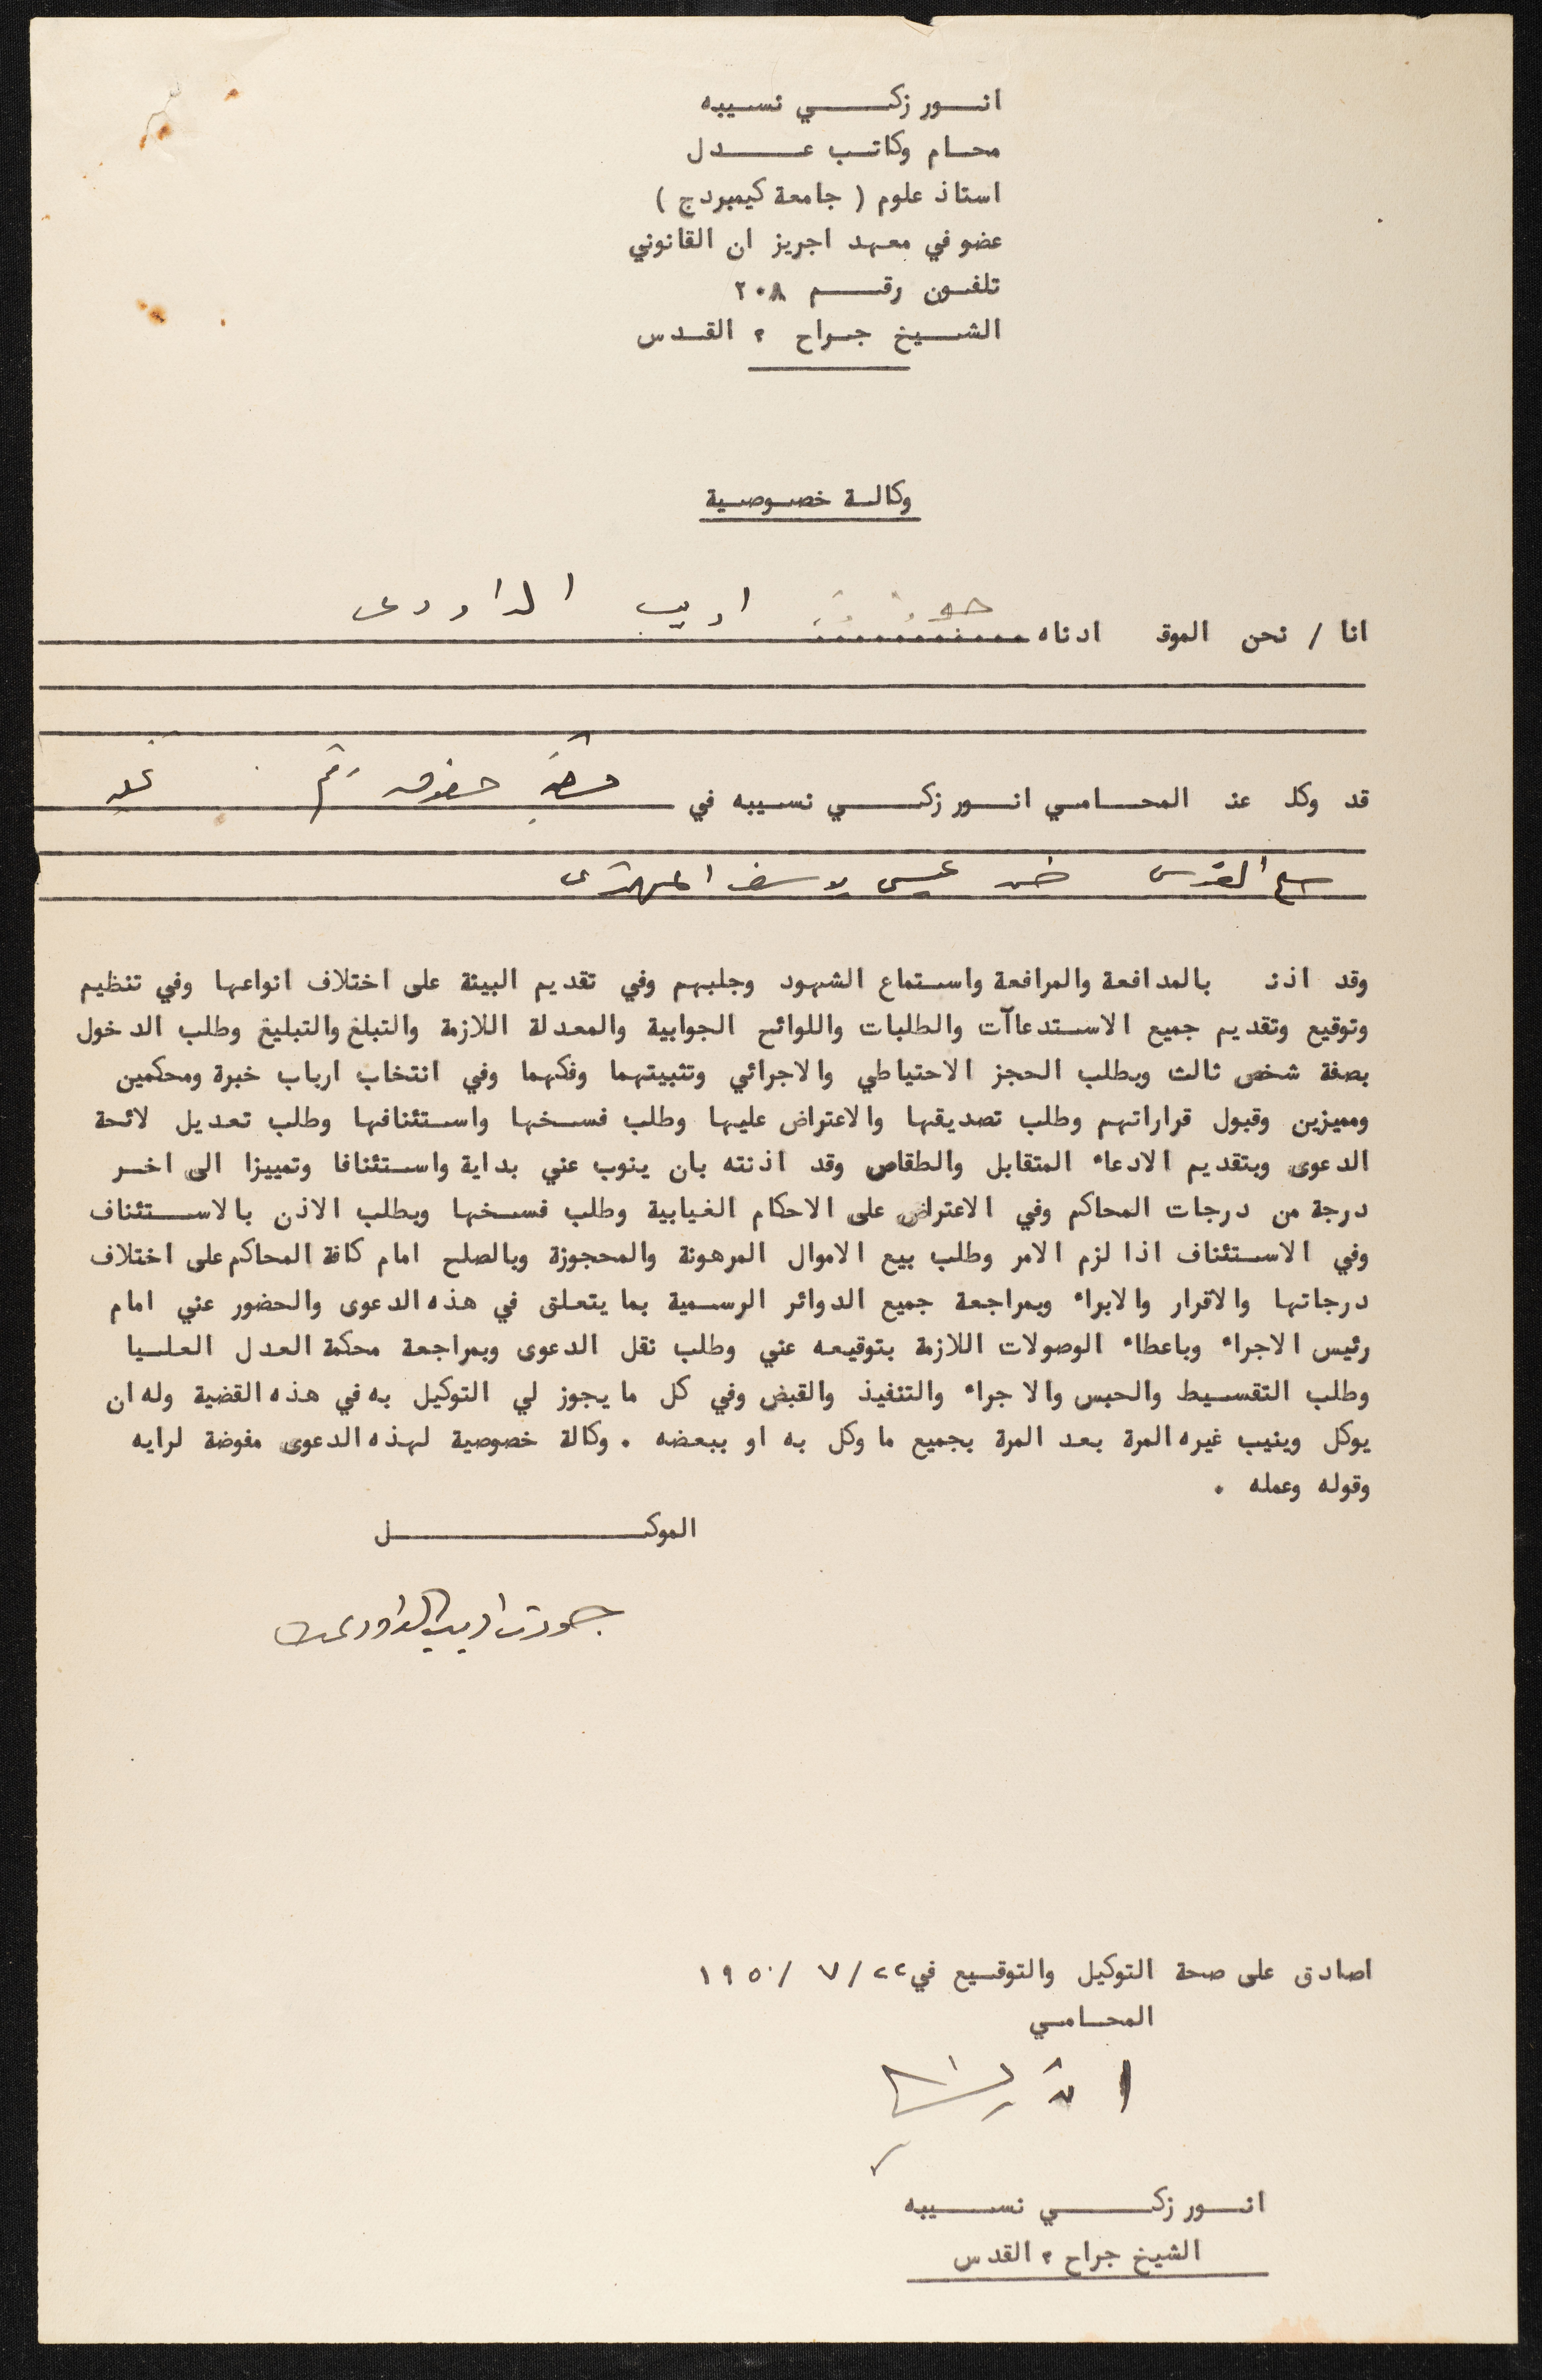 انور زكي نسيبه
محام وكاتب عدل
استاذ علوم ( جامعة كيمبردج )
عضو في معهد اجريز ان القانوني
تلفون رقم ٢٠٨
الشيخ جراح ، القدس
وكالة خصوصية
انا / نحن الموقع ادناه جودت اديب الداودي
قد وكلت عني المحامي انور زكي نسيبه في قضية حقوق رقم
القدس ضد عيسى يوسف
وقد اذنت بالمدافعة والمرافعة واستماع الشهود وجلبهم وفي تقديم البينة على اختلاف انواعها وفي تنظيم
وتوقيع وتقديم جميع الاستدعاآت والطلبات واللوائح الجوابية والمعدلة اللازمة والتبلغ والتبليغ وطلب الدخول
بصفة شخص ثالث وبطلب الحجز الاحتياطي والاجرائي وتثبيتهما وفكهما وفي انتخاب ارباب خبرة ومحكمين
ومميزين وقبول قراراتهم وطلب تصديقها والاعتراض عليها وطلب فسخها واستئنافها وطلب تعديل لائحة
الدعوى وبتقديم الادعاء المتقابل والطقاص وقد اذنته بان ينوب عني بداية واستئنافا وتمييزا الى اخر
درجة من درجات المحاكم وفي الاعتراض على الاحكام الغيابية وطلب فسخها وبطلب الاذن بالاستئناف
وفي الاستئناف اذا لزم الامر وطلب بيع الاموال المرهونة والمحجوزة وبالصلح امام كافة المحاكم على اختلاف
درجاتها والاقرار والابراء وبمراجعة جميع الدوائر الرسمية بما يتعلق في هذه الدعوى والحضور عني امام
رئيس الاجراء وباعطاء الوصولات اللازمة بتوقيعه عني وطلب نقل الدعوى وبمراجعة محكمة العدل العليا
وطلب التقسيط والحبس والاجراء والتنفيذ والقبض وفي كل ما يجوز لي التوكيل به في هذه القضية وله ان
يوكل وينيب غيره المرة بعد المرة بجميع ما وكل به او ببعضه . وكالة خصوصية لهذه الدعوى مفوضة لرايه
وقوله وعمله .
الموكل
جودت اديب الداودي
اصادق على صحة التوكيل والتوقيع في ٢٢ / ٧ / ١٩٥٠
المحامي
انور زكي نسيبه
الشيخ جراح ، القدس